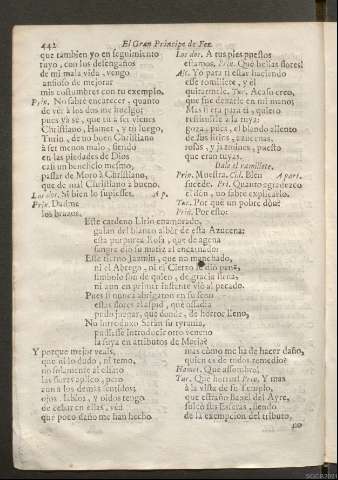 442 El Gran Principe de Fez.
que tambien yo en seguimiento
tuyo, con los desengaños
de mi mala vida, vengo
ansioso de mejorar
mis costumbres con tu exemplo.
Prin. No sabrè encarecer, quanto
de ver à los dos me huelgo;
pues ya sè, que tu à ser vienes
Christiano, Hamet, y tù luego,
Turin, de no buen Christiano
à ser menos malo, siendo
en las piedades de Dios
casi un beneficio mesmo,
passar de Moro à Christiano,
que de mal Christiano à bueno.
Los dos. Si bien lo supiesses. Ap.
Prin. Dadme
los brazos.
Los dos. A tus pies puestos
estamos. Prin. Què bellas flores!
Al. Yo para ti estaba haciendo
esse ramillete, y el
quitarmele. Tur. Acaso creo,
que fue dexarle en mi mano;
Mas si era para ti, quiero
restituirle à la tuya:
goza, pues, el blando aliento
de sus lirios, azucenas,
rosas, y jazmines, puesto
que eran tuyas.
Dale el ramillete.
Prin. Muestra. Cid. Bien A part.
sucede. Pri. Quanto agradezco
el dòn, no sabrè explicarlo.
Tur. Por què un pobre dòn?
Prin. Por esto:
Este cardeno Lirio enamorado,
galan del blanco albòr de esta Azucena:
esta purpurea Rosa, que de agena
sangre diò su matiz al encarnado:
Este tierno Jazmin, que no manchado,
ni el Abrego, ni el Cierzo le diò pena,
simbolo son de quien, de gracia llena,
ni aun en primer instante viò al pecado.
Pues si nunca abrigaron en su seno
estas flores al aspid, què ossadia
pudo juzgar, que donde, de horror lleno,
No introduxo Satàn su tyrania,
pudiesse introducir otro veneno
la suya en atributos de Maria?
Y porque mejor veais,
que ni lo dudo, ni temo,
no solamente al olfato
las flores aplico, pero
aun à los demàs sentidos,
ojos, labios, y oidos tengo
de echar en ellas, vèd
què poco daño me han hecho
mas còmo me ha de hacer daño,
quien es de todos remedio?
Hamet. Què assombro!
Tur. Què horror! Prin. Y mas
à la vista de su Templo,
que estraño Baxel del Ayre,
sulcò sus Esferas, siendo
de la exempcion del tributo,
no